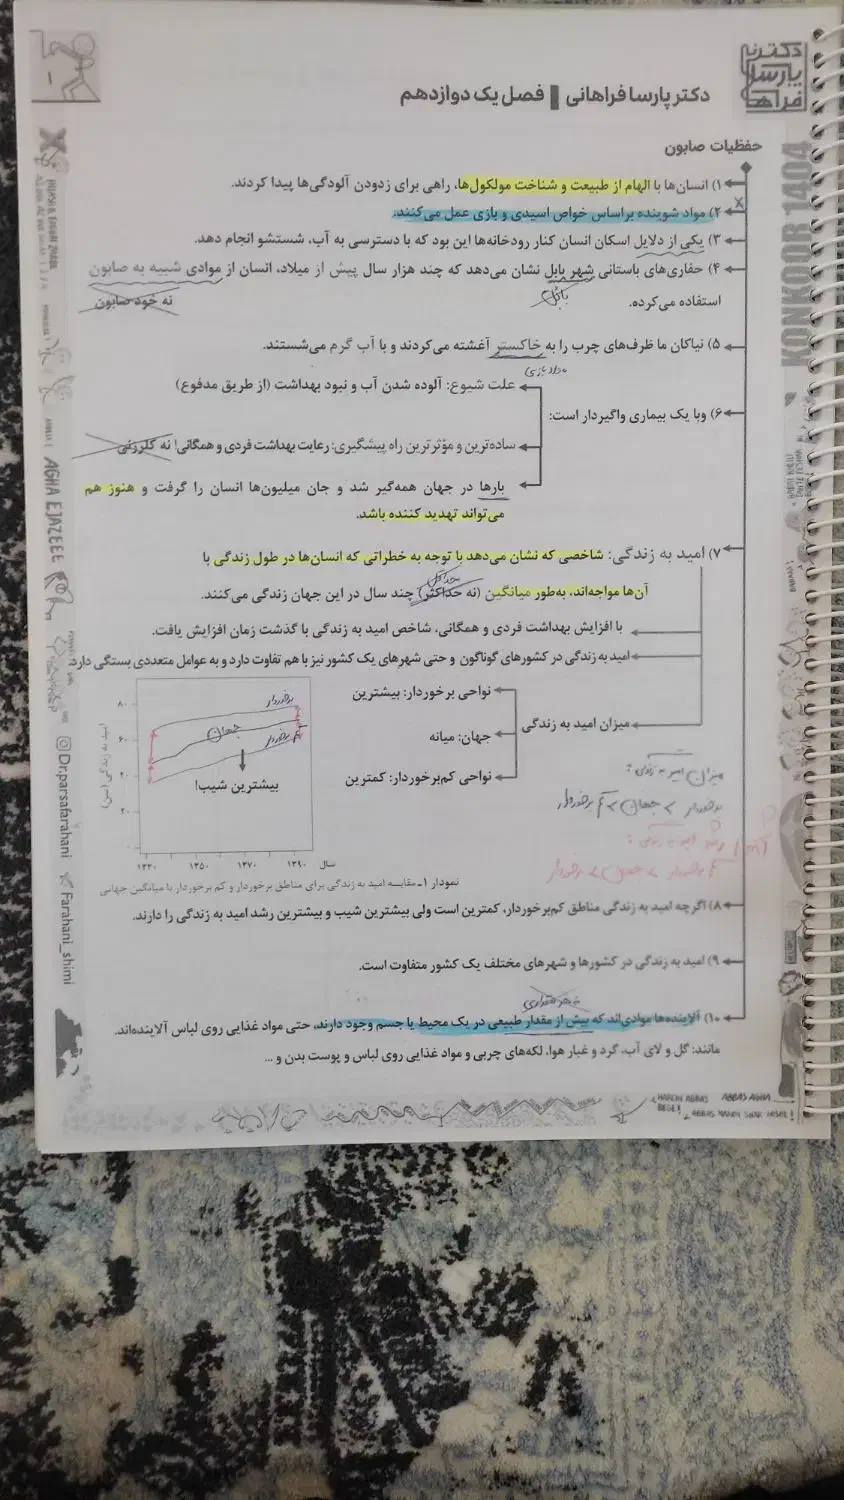 دکتر پارسا فراهانی | فصل یک دوازدهم
دکتر پارسا فراهانی
۱
حفظیات صابون
۱) انسان‌ها با الهام از طبیعت و شناخت مولکول‌ها، راهی برای زدودن آلودگی‌ها پیدا کردند.
۲) مواد شوینده براساس خواص اسیدی و بازی عمل می‌کنند.
۳) یکی از دلایل اسکان انسان کنار رودخانه‌ها این بود که با دسترسی به آب، شستشو انجام دهد.
۴) حفاری‌های باستانی شهر بابل نشان می‌دهد که چند هزار سال پیش از میلاد، انسان از موادی شبیه به صابون
استفاده می‌کرده.
نه خود صابون
۵) نیاکان ما ظرف‌های چرب را به خاکستر آغشته می‌کردند و با آب گرم می‌شستند.
۶) وبا یک بیماری واگیردار است:
علت شیوع: آلوده شدن آب و نبود بهداشت (از طریق مدفوع)
ساده‌ترین و مؤثرترین راه پیشگیری: رعایت بهداشت فردی و همگانی! نه کلرزنی
بارها در جهان همه‌گیر شد و جان میلیون‌ها انسان را گرفت و هنوز هم
می‌تواند تهدید کننده باشد.
۷) امید به زندگی: شاخصی که نشان می‌دهد با توجه به خطراتی که انسان‌ها در طول زندگی با
آن‌ها مواجه‌اند، به‌طور میانگین (نه حداکثر) چند سال در این جهان زندگی می‌کنند.
حداقل
با افزایش بهداشت فردی و همگانی، شاخص امید به زندگی با گذشت زمان افزایش یافت.
امید به زندگی در کشورهای گوناگون و حتی شهرهای یک کشور نیز با هم تفاوت دارد و به عوامل متعددی بستگی دارد.
میزان امید به زندگی
نواحی برخوردار: بیشترین
جهان: میانه
نواحی کم‌برخوردار: کمترین
امید به زندگی (سن)
۸۰
۶۰
۴۰
۲۰
۰
برخوردار
جهان
کم برخوردار
بیشترین شیب!
۱۳۳۰ ۱۳۵۰ ۱۳۷۰ ۱۳۹۰ سال
میزان امید به زندگی:
برخوردار > جهان > کم برخوردار
رشد امید به زندگی:
کم برخوردار > جهان > برخوردار
نمودار ۱ـ مقایسه امید به زندگی برای مناطق برخوردار و کم برخوردار با میانگین جهانی
۸) اگرچه امید به زندگی مناطق کم‌برخوردار، کمترین است ولی بیشترین شیب و بیشترین رشد امید به زندگی را دارند.
۹) امید به زندگی در کشورها و شهرهای مختلف یک کشور متفاوت است.
۱۰) آلاینده‌ها موادی‌اند که بیش از مقدار طبیعی در یک محیط یا جسم وجود دارند، حتی مواد غذایی روی لباس آلاینده‌اند.
مانند: گل و لای آب، گرد و غبار هوا، لکه‌های چربی و مواد غذایی روی لباس و پوست بدن و ...
KONKOOR 1404
AGHA EJAZEEE
Dr.parsafarahani
Farahani_shimi
ABBAS AGHA